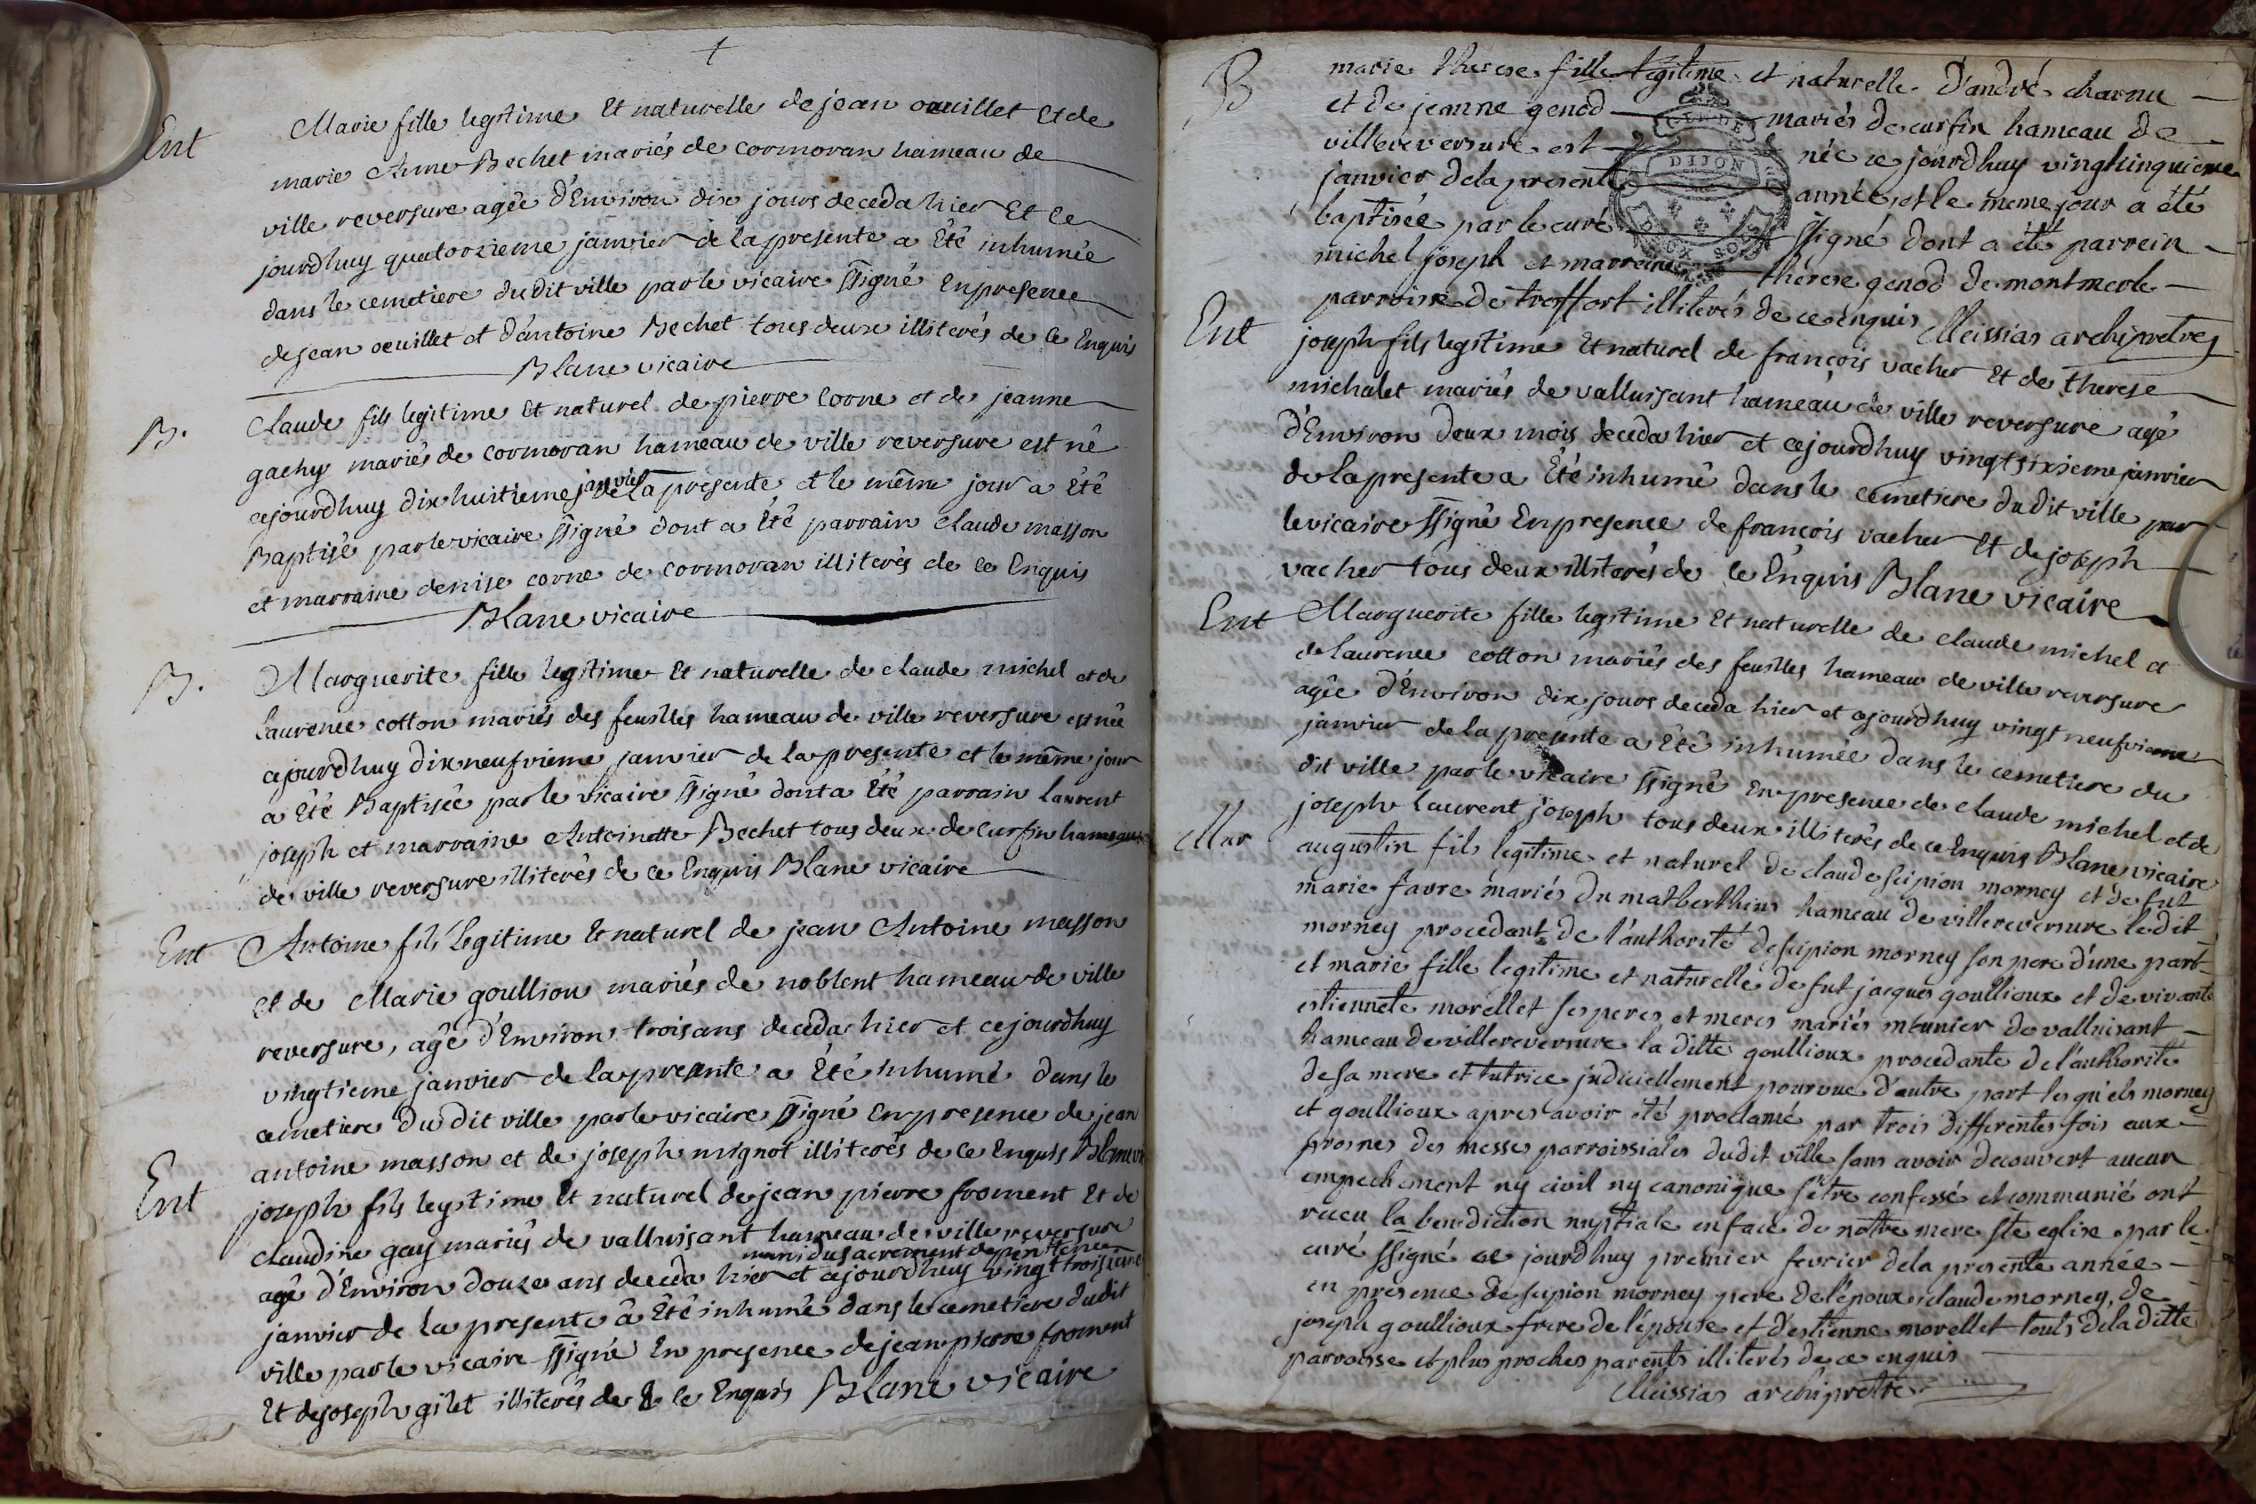 Ent
Marie fille legitime Et naturelle de jean oeuillet Et de
marie Anne Bechet mariés de cormoran hameau de
ville reversure agée d'Environ dix jours deceda hier Et ce
jourdhuy quatorzieme janvier de la presente a Eté inhumée
dans le cemetiere dudit ville par le vicaire ssigné En presence
de jean oeuillet et d'antoine Bechet tous deux illiterés de ce Enquis
Blanc vicaire
B.
Claude fils legitime Et naturel de pierre Corne et de jeanne
gachy mariés de cormoran hameau de ville reversure est né
cejourdhuy dix huitieme janvier de la presente et le même jour a Eté
Baptisé par le vicaire ssigné dont a Eté parrain claude masson
et marraine denise corne de cormoran illiterés de ce Enquis
Blanc vicaire
B.
Marguerite fille legitime Et naturelle de claude michel et de
Laurence cotton mariés des feuilles hameau de ville reversure est née
cejourdhuy dix neufvieme janvier de la presente et le même jour
a Eté Baptisée par le vicaire ssigné dont a Eté parrain Laurent
joseph et marraine Antoinette Bechet tous deux de Curfin hameaux
de ville reversure illiterés de ce Enquis Blanc vicaire
Ent
Antoine fils Legitime Et naturel de jean Antoine masson
et de Marie goullion mariés de noblent hameau de ville
reversure, agé d'Environ trois ans deceda hier et cejourdhuy
vingtieme janvier de la presente a Eté inhumé dans le
cemetiere du dit ville par le vicaire ssigné En presence de jean
antoine masson et de joseph mignot illiterés de ce Enquis Blanc vi
Ent
joseph fils legitime Et naturel de jean pierre froment Et de
claudine gay mariés de valluissant hameau de ville reversure
muni du sacrement de penitence
agé d'Environ douze ans deceda hier et cejourdhuy vingt troisieme
janvier de la presente a Eté inhumé dans le cemetiere dudit
ville par le vicaire ssigné En presence de jean pierre froment
Et de joseph gilet illiterés de ce Enquis Blanc vicaire
B
marie therese fille legitime et naturelle d'andré charnu
et de jeanne genod mariés de curfin hameau de
villereversure est née ce jourdhuy vingtcinquieme
janvier de la presente année et le meme jour a été
baptisée par le curé ssigné dont a été parrein
michel joseph et marreine therese genod de montmerle
parroisse de treffort illiterés de ce enquis
Meissias archipretre
DIJON
DEUX SOLS
Ent
joseph fils legitime Et naturel de françois vacher Et de therese
michalet mariés de valluissant hameau de ville reversure agé
d'Environ deux mois deceda hier et cejourdhuy vingt sixieme janvier
de la presente a Eté inhumé dans le cemetiere du dit ville par
le vicaire ssigné En presence de françois vacher Et de joseph
vacher tous deux illiterés de ce Enquis Blanc vicaire
Ent
Marguerite fille legitime Et naturelle de claude michel et
de laurence cotton mariés des feuilles hameau de ville reversure
agée d'Environ dix jours deceda hier et cejourdhuy vingt neufvieme
janvier de la presente a Eté inhumée dans le cemetiere du
dit ville par le vicaire ssigné En presence de claude michel et de
joseph Laurent joseph tous deux illiterés de ce Enquis Blanc vicaire
Mar
augustin fils legitime et naturel de claude scipion morney et de fut
marie favre mariés du matberthius hameau de villereversure ledit
morney procedant de l'authorité de scipion morney son pere d'une part
et marie fille legitime et naturelle de fut jacques goullioux et de vivante
estiennete morellet ses peres et meres mariés meunier de valluisant
hameau de villereversure la ditte goullioux procedante de l'authorité
de sa mere et tutrice judiciellement pourvue d'autre part lesqu'els morney
et goullioux apres avoir eté proclamé par trois differentes fois aux
prosnes des messes parroissiales dudit ville sans avoir decouvert aucun
empechement ny civil ny canonique s'etre confessé et communié ont
receu la benediction nuptiale en face de notre mere ste eglise par le
curé ssigné ce jourdhuy premier fevrier de la presente année
en presence de scipion morney pere de l'epoux, claude morney, de
joseph goullioux frere de l'epouse et d'estienne morellet touts de la ditte
parroisse et plus proches parents illiterés de ce enquis
Meissias archipretre